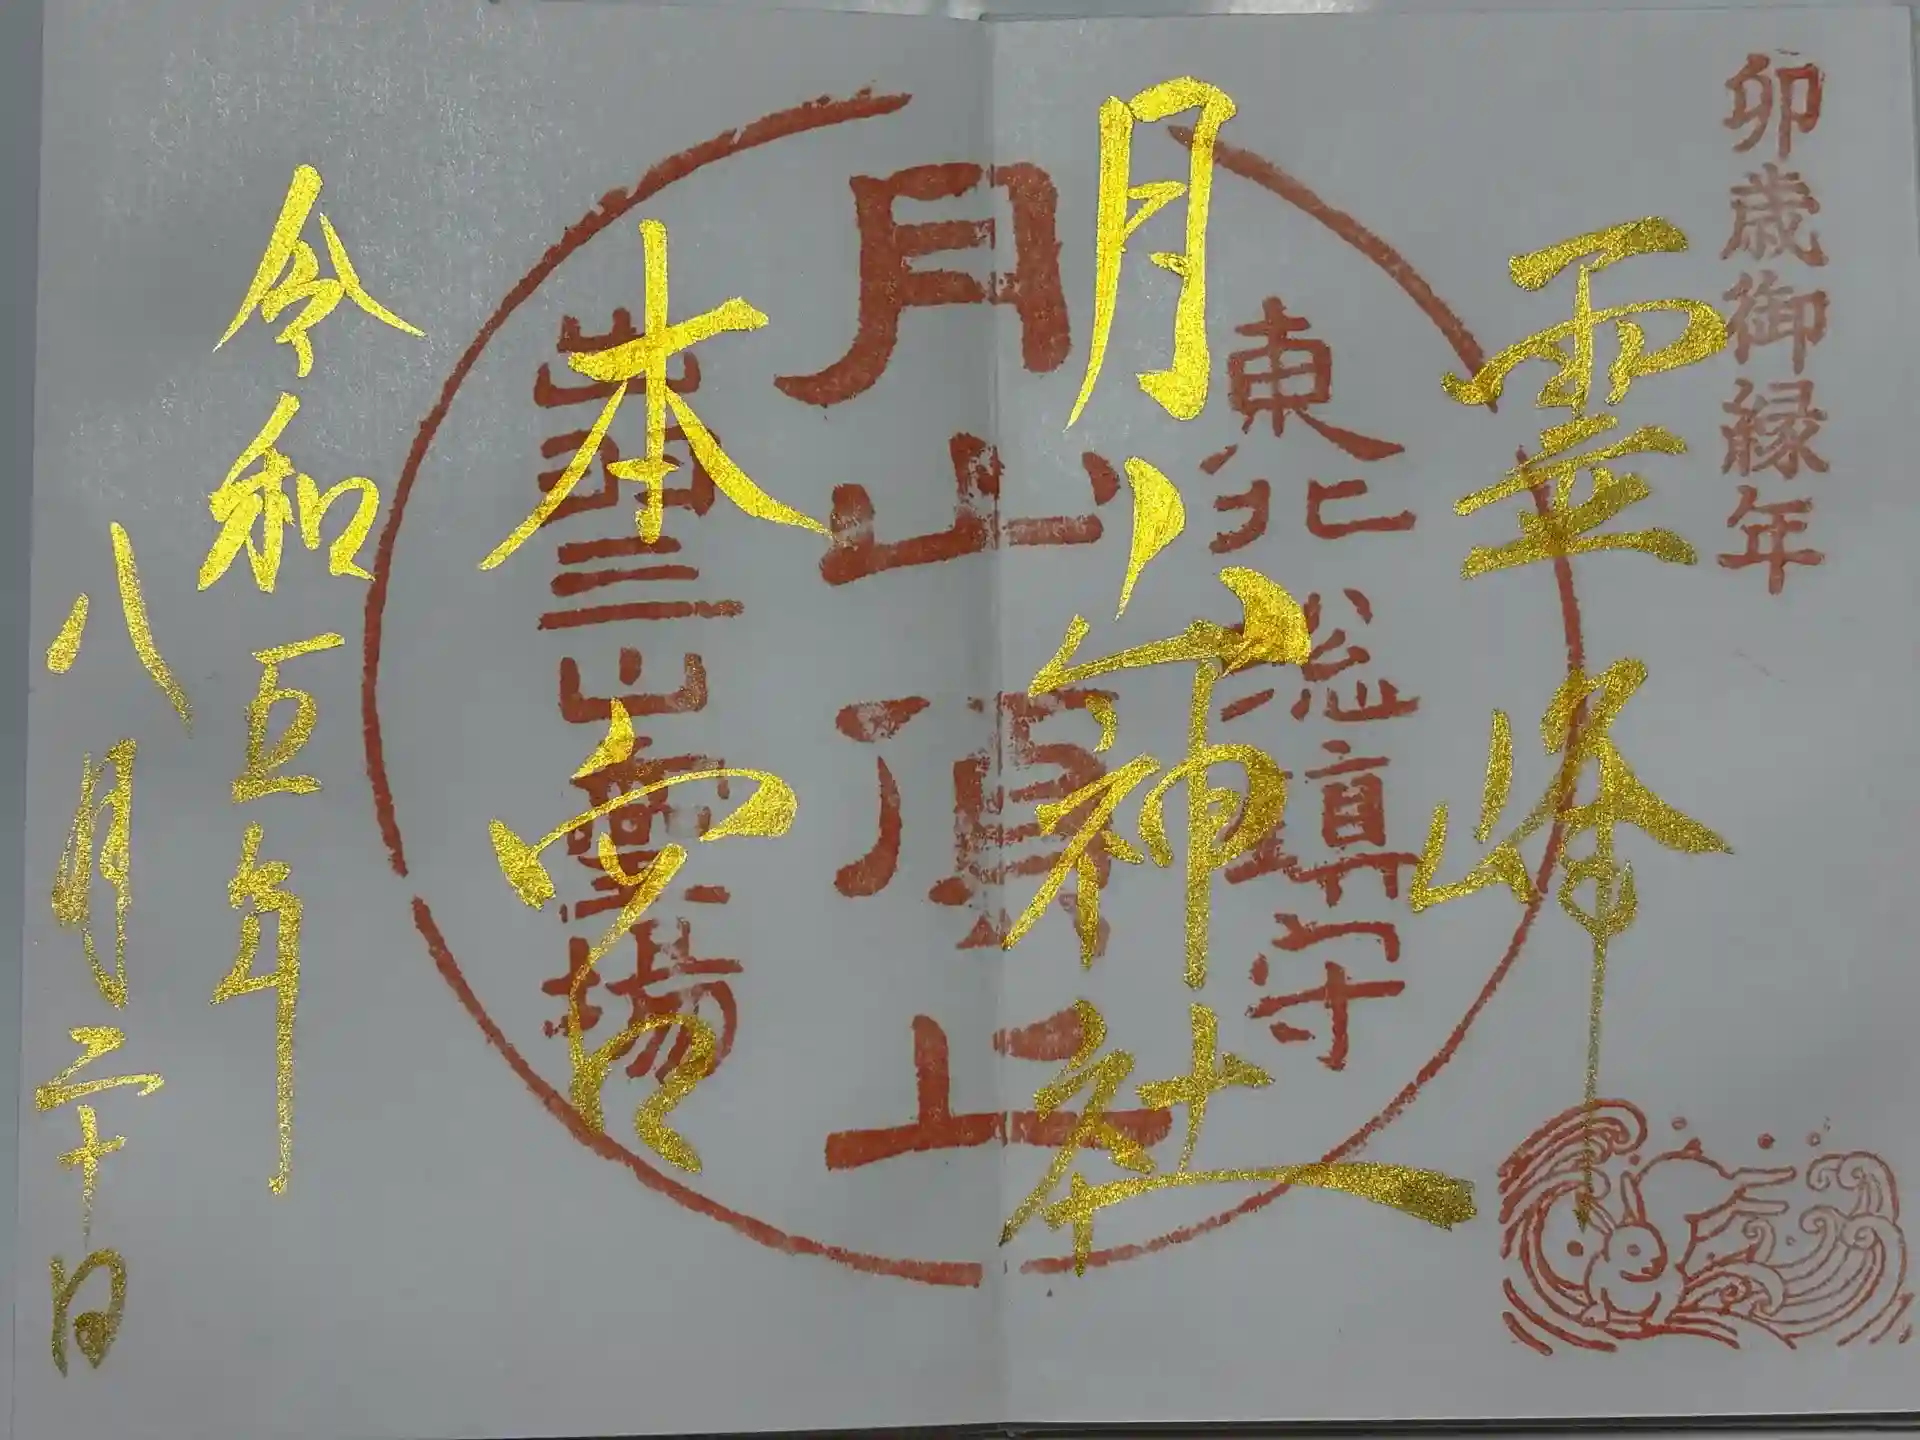 卯歳御縁年
霊峰
月山神社
本宮
令和五年
八月二十日
東北総真守
月山頂上
出羽三山霊場